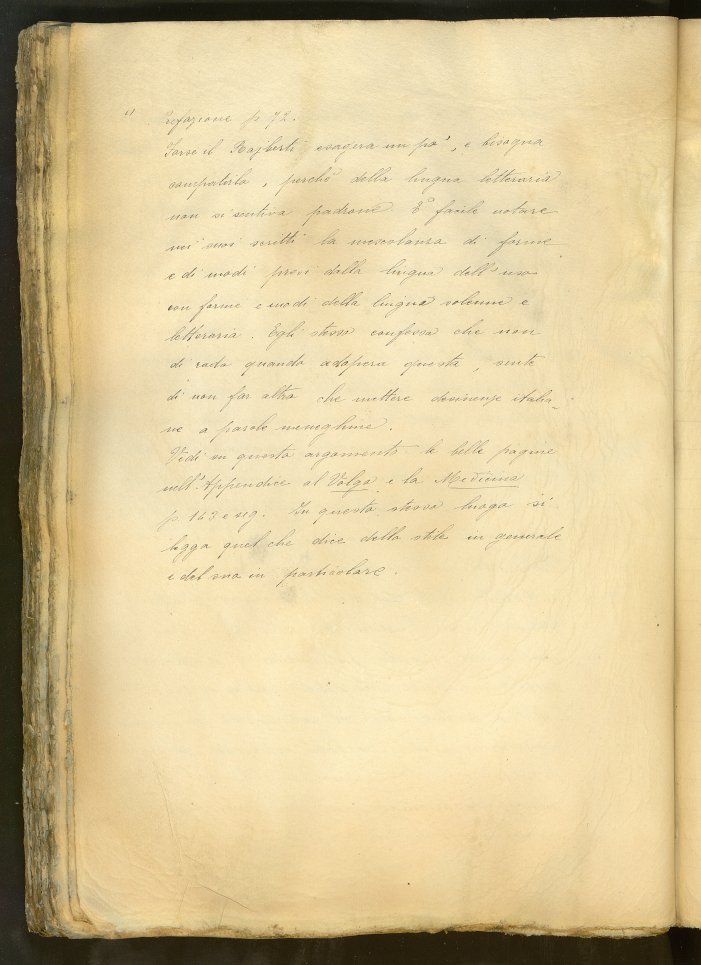 4) Prefazione p. 72.
Forse il Rajberti esagera un po', e bisogna
compatirlo, perchè della lingua letteraria
non si sentiva padrone. È facile notare
nei suoi scritti la mescolanza di forme
e di modi presi dalla lingua dell'uso
con forme e modi della lingua solenne e
letteraria. Egli stesso confessa che non
di rado quando adopera questa, sente
di non far altro che mettere desinenze italia-
ne a parole meneghine.
Vedi su questo argomento le belle pagine
nell'Appendice al Volgo e la Medicina
p. 143 e seg. In questo stesso luogo si
legga quel che dice dello stile in generale
e del suo in particolare.